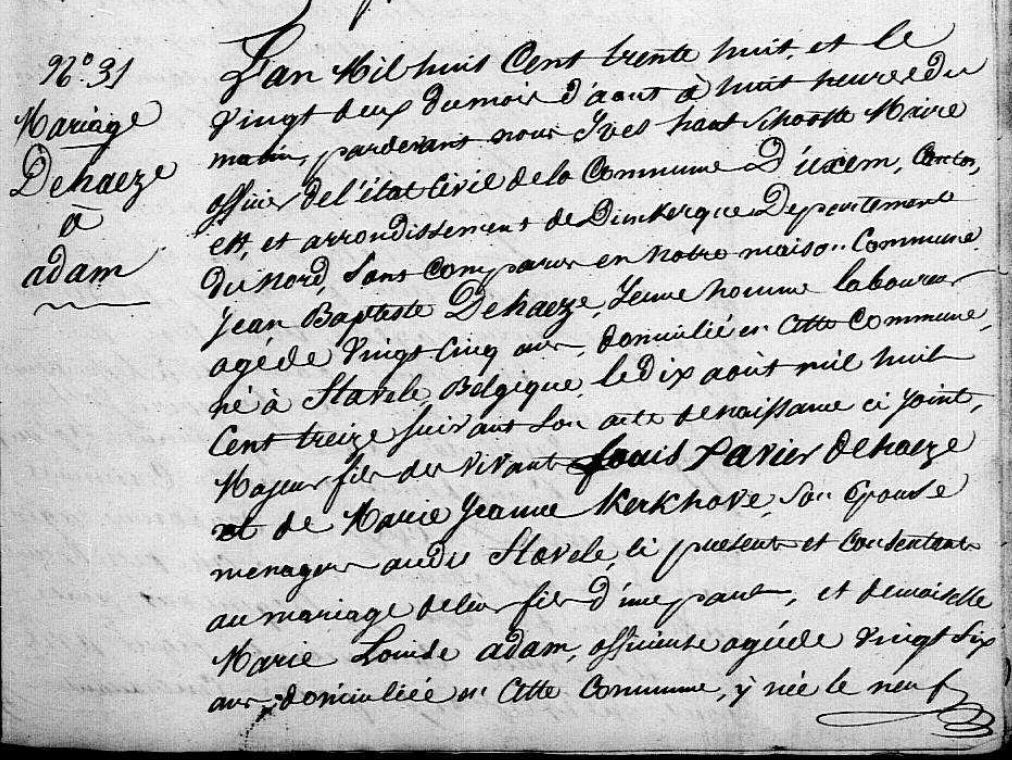 N.º 31
Mariage
Dehaeze
à
adam
L'an Mil huit Cent trente huit, et le
vingt deux du mois d'aout à huit heures du
matin, pardevant nous Yves haut Schoote Maire
officier de l'état Civil de la Commune D'uxem, Canton,
est, et arrondissement de Dunkerque Departement
du nord, Sont Comparus en notre maison Commune
Jean Baptiste Dehaeze, Jeune homme laboureur
agé de vingt Cinq ans, domicilié en Cette Commune,
né à Stavele Belgique, le dix août mil huit
Cent treize suivant son acte de naissance ci joint,
Majeur fils des vivants Louis Xavier dehaeze
et de Marie Jeanne Kerkhove, son Epouse
menagers audit Stavele, ci présents et Consentants
au mariage de leur fils d'une part, et demoiselle
Marie Louise adam, agée de vingt six
ans, domiciliée en Cette Commune, y née le neuf